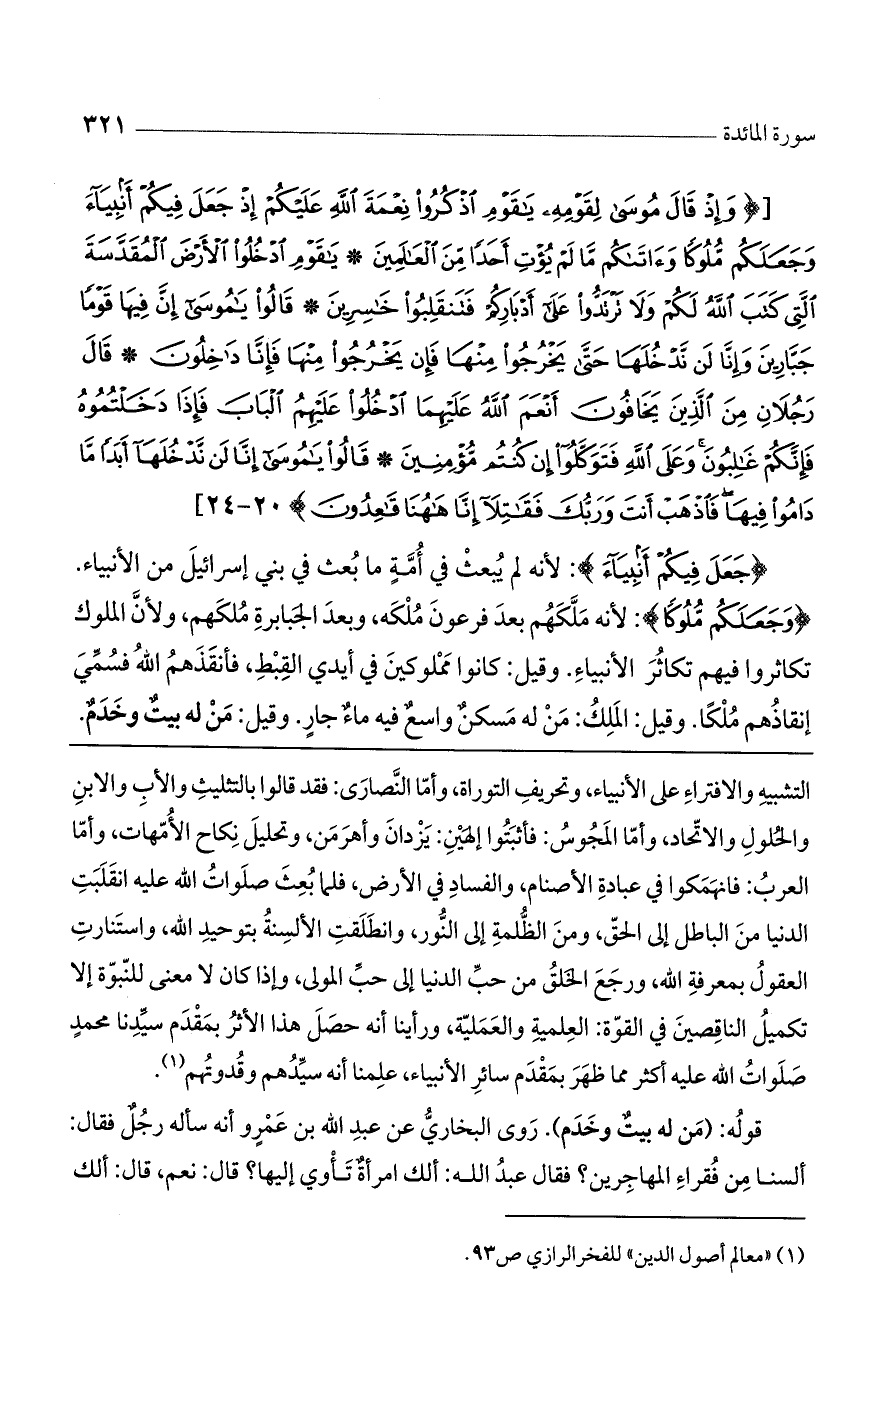 سورة المائدة ٣٢١
[﴿ وَإِذْ قَالَ مُوسَىٰ لِقَوْمِهِۦ يَٰقَوْمِ ٱذْكُرُوا۟ نِعْمَةَ ٱللَّهِ عَلَيْكُمْ إِذْ جَعَلَ فِيكُمْ أَنۢبِيَآءَ
وَجَعَلَكُم مُّلُوكًا وَءَاتَىٰكُم مَّا لَمْ يُؤْتِ أَحَدًا مِّنَ ٱلْعَٰلَمِينَ * يَٰقَوْمِ ٱدْخُلُوا۟ ٱلْأَرْضَ ٱلْمُقَدَّسَةَ
ٱلَّتِى كَتَبَ ٱللَّهُ لَكُمْ وَلَا تَرْتَدُّوا۟ عَلَىٰٓ أَدْبَارِكُمْ فَتَنقَلِبُوا۟ خَٰسِرِينَ * قَالُوا۟ يَٰمُوسَىٰٓ إِنَّ فِيهَا قَوْمًا
جَبَّارِينَ وَإِنَّا لَن نَّدْخُلَهَا حَتَّىٰ يَخْرُجُوا۟ مِنْهَا فَإِن يَخْرُجُوا۟ مِنْهَا فَإِنَّا دَٰخِلُونَ * قَالَ
رَجُلَانِ مِنَ ٱلَّذِينَ يَخَافُونَ أَنْعَمَ ٱللَّهُ عَلَيْهِمَا ٱدْخُلُوا۟ عَلَيْهِمُ ٱلْبَابَ فَإِذَا دَخَلْتُمُوهُ
فَإِنَّكُمْ غَٰلِبُونَ ۚ وَعَلَى ٱللَّهِ فَتَوَكَّلُوٓا۟ إِن كُنتُم مُّؤْمِنِينَ * قَالُوا۟ يَٰمُوسَىٰٓ إِنَّا لَن نَّدْخُلَهَآ أَبَدًا مَّا
دَامُوا۟ فِيهَا ۖ فَٱذْهَبْ أَنتَ وَرَبُّكَ فَقَٰتِلَآ إِنَّا هَٰهُنَا قَٰعِدُونَ ﴾ ٢٠-٢٤]
﴿جَعَلَ فِيكُمْ أَنۢبِيَآءَ ﴾: لأنه لم يُبعثْ في أُمَّةٍ ما بُعث في بني إسرائيلَ من الأنبياء.
﴿وَجَعَلَكُم مُّلُوكًا﴾: لأنه مَلَّكَهُم بعدَ فرعونَ مُلْكَه، وبعدَ الجَبابرةِ مُلكَهم، ولأنَّ الملوك
تكاثروا فيهم تكاثُرَ الأنبياءِ. وقيل: كانوا مَمْلوكينَ في أيدي القِبْطِ، فأنقَذَهمُ اللهُ فسُمِّيَ
إنقاذُهم مُلْكًا. وقيل: المَلِكُ: مَنْ له مَسكنٌ واسعٌ فيه ماءٌ جارٍ. وقيل: مَنْ له بيتٌ وخَدَمٌ.
التشبيهِ والافتراءِ على الأنبياء، وتحريفِ التوراة، وأمّا النَّصارَى: فقد قالوا بالتثليثِ والأبِ والابنِ
والحُلولِ والاتّحاد، وأمّا المَجُوسُ: فأثبَتُوا إلهَيْنِ: يَزْدانَ وأهرَمَن، وتحليلَ نِكاحِ الأُمّهات، وأمّا
العربُ: فانهَمَكوا في عبادةِ الأصنام، والفسادِ في الأرض، فلما بُعِثَ صلَواتُ الله عليه انقَلَبَتِ
الدنيا منَ الباطل إلى الحقّ، ومنَ الظُّلمةِ إلى النُّور، وانطَلَقتِ الألسِنةُ بتوحيدِ الله، واستَنارتِ
العقولُ بمعرفةِ الله، ورجَعَ الخَلقُ من حبِّ الدنيا إلى حبِّ المولى، وإذا كان لا معنى للنّبوّة إلا
تكميلُ الناقِصينَ في القوّة: العِلميةِ والعَمَليّة، ورأينا أنه حصَلَ هذا الأثرُ بمَقْدَم سيِّدِنا محمدٍ
صَلَواتُ الله عليه أكثر مما ظهَرَ بمَقْدَم سائرِ الأنبياء، علِمنا أنه سيِّدُهم وقُدوتُهم(١).
قولُه: (مَن له بيتٌ وخَدَم). رَوى البخاريُّ عن عبدِ الله بن عَمْرٍو أنه سأله رجُلٌ فقال:
ألسنا مِن فُقراءِ المهاجِرين؟ فقال عبدُ اللـه: ألك امرأةٌ تَـأْوي إليها؟ قال: نعم، قال: ألك
(١) «معالم أصول الدين» للفخر الرازي ص٩٣.